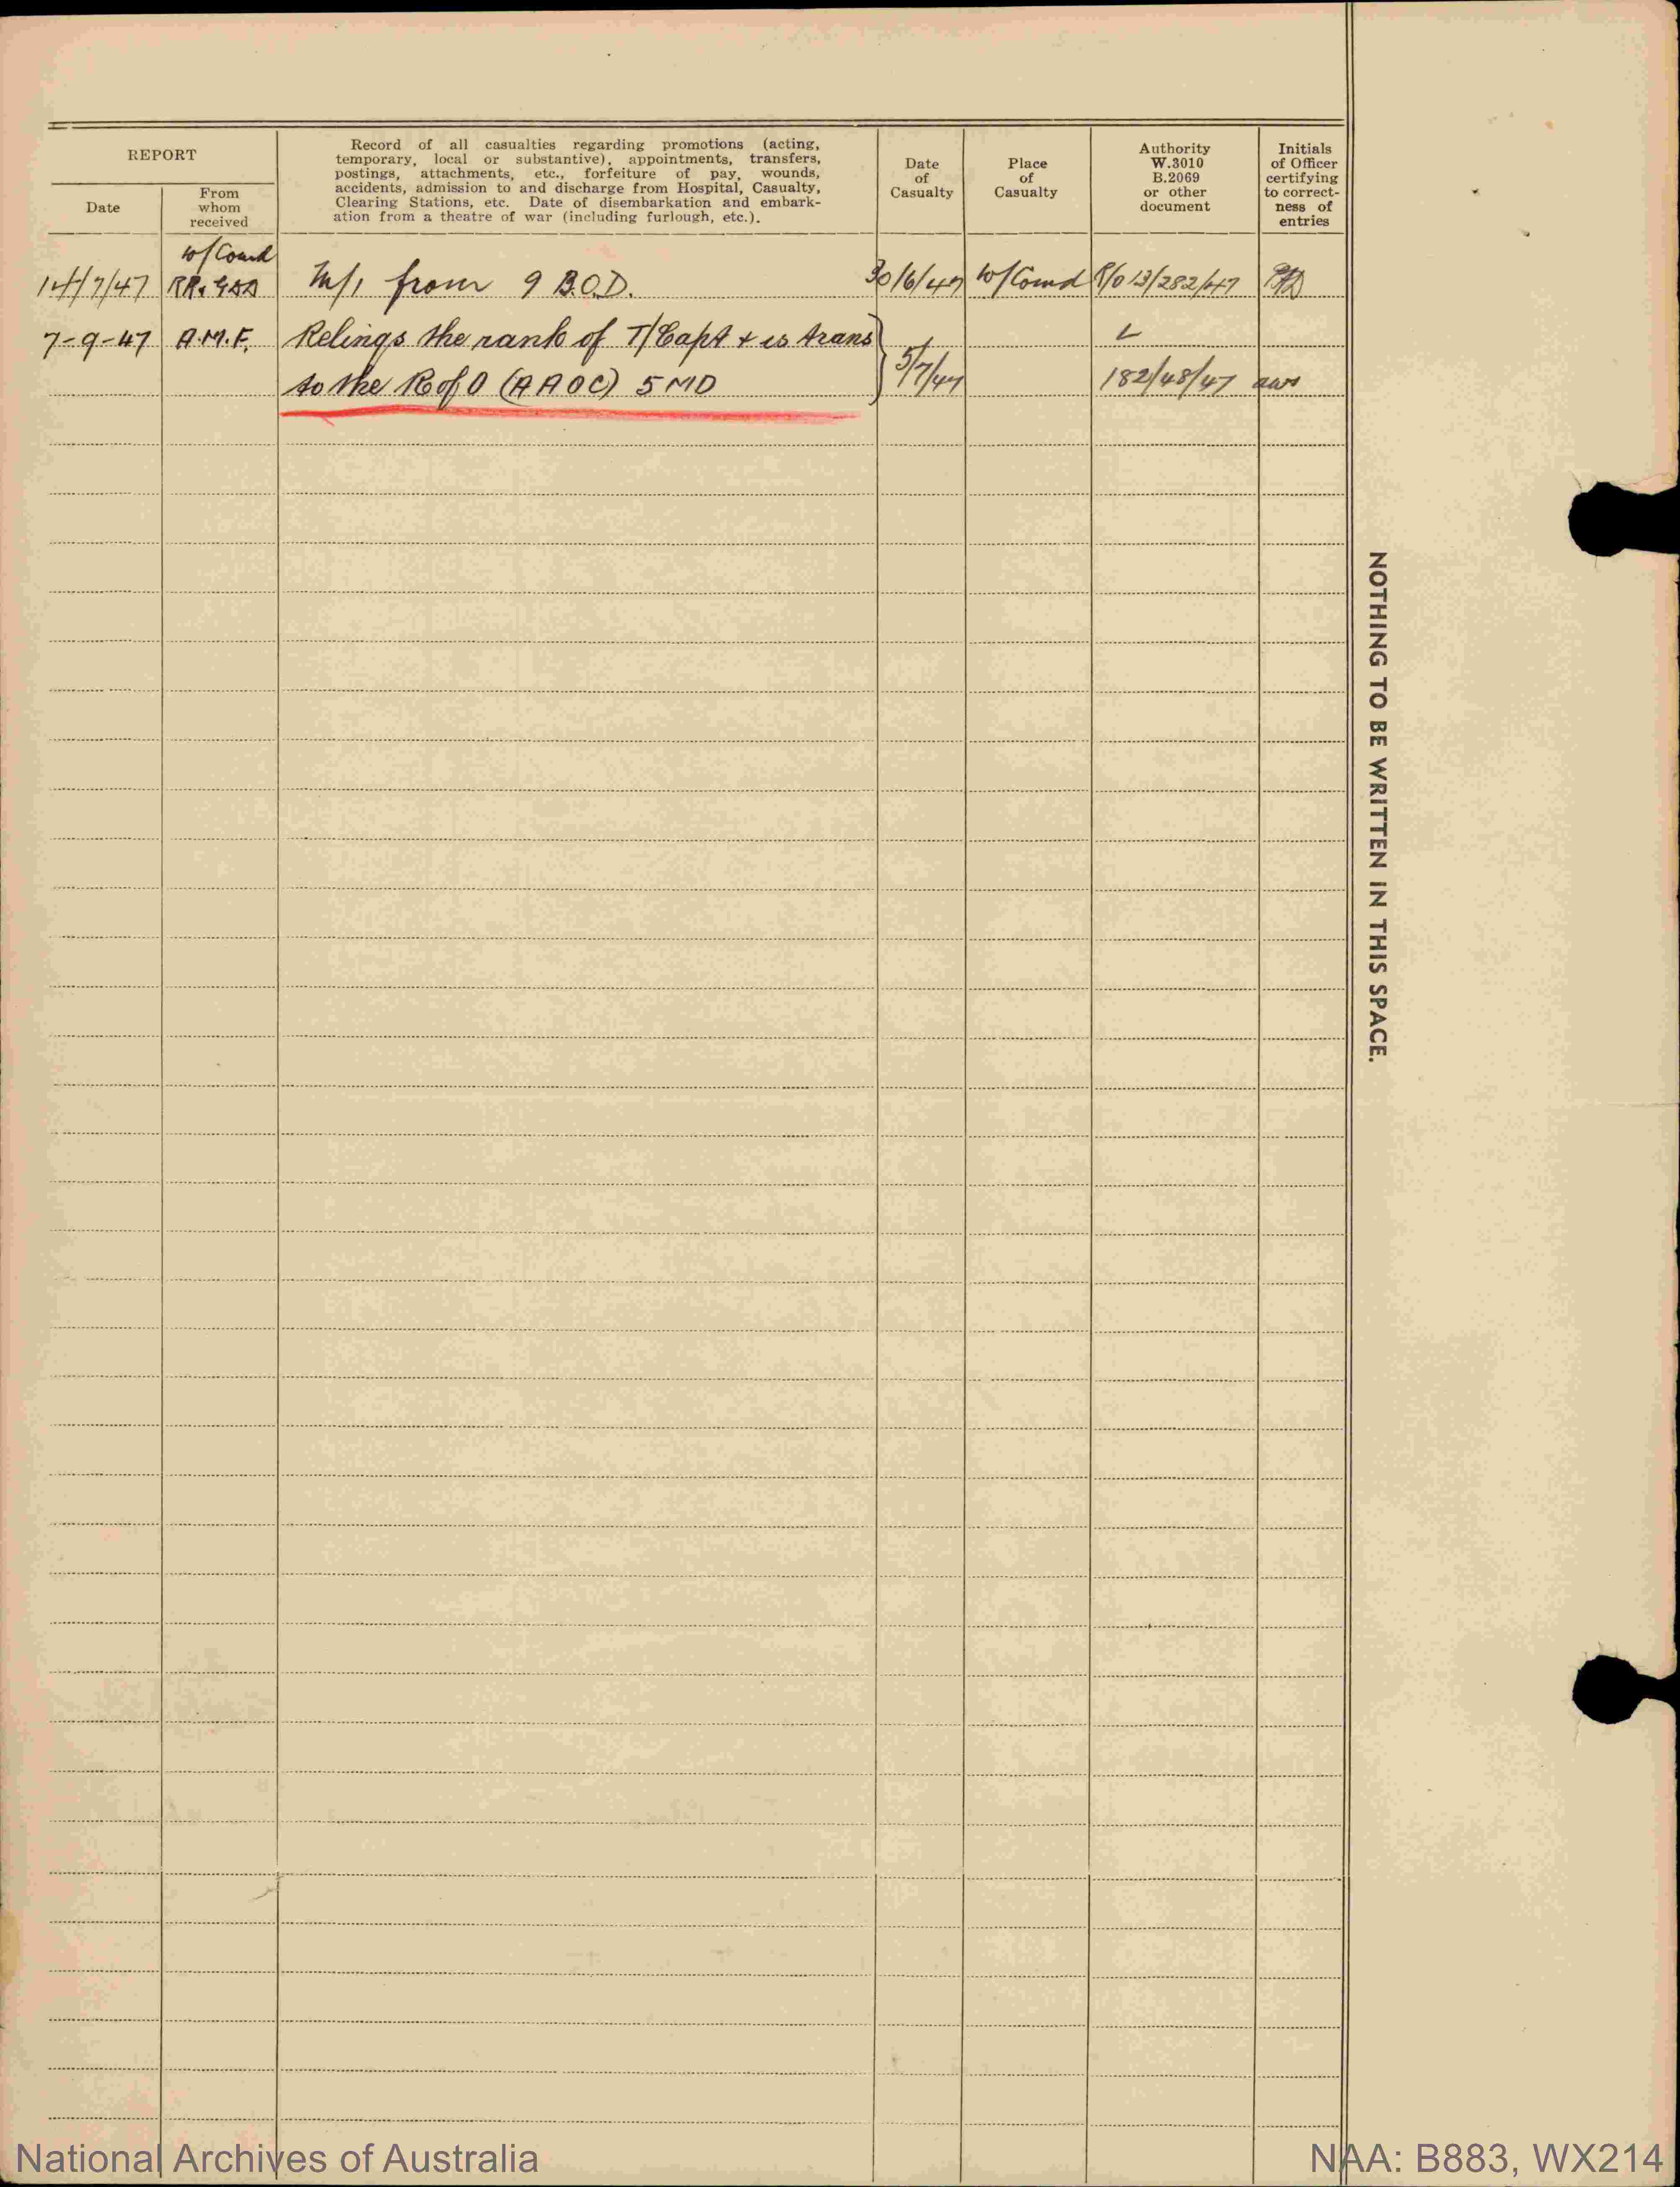 REPORT
Date
From
whom
received
Record of all casualties regarding promotions (acting,
temporary, local or substantive), appointments, transfers,
postings, attachments, etc., forfeiture of pay, wounds,
accidents, admission to and discharge from Hospital, Casualty,
Clearing Stations, etc. Date of disembarkation and embark-
ation from a theatre of war (including furlough, etc.).
Date
of
Casualty
Place
of
Casualty
Authority
W.3010
B.2069
or other
document
Initials
of Officer
certifying
to correct-
ness of
entries
W/Comd
14/7/47 M/I from 9 B.O.D. 30/6/47 W/Comd R/O 13/282/47
7-9-47 A.M.F. Relinqs the rank of T/Capt + is trans
to the R of O (AAOC) 5 MD 5/7/47 182/48/47
NOTHING TO BE WRITTEN IN THIS SPACE.
National Archives of Australia
NAA: B883, WX214